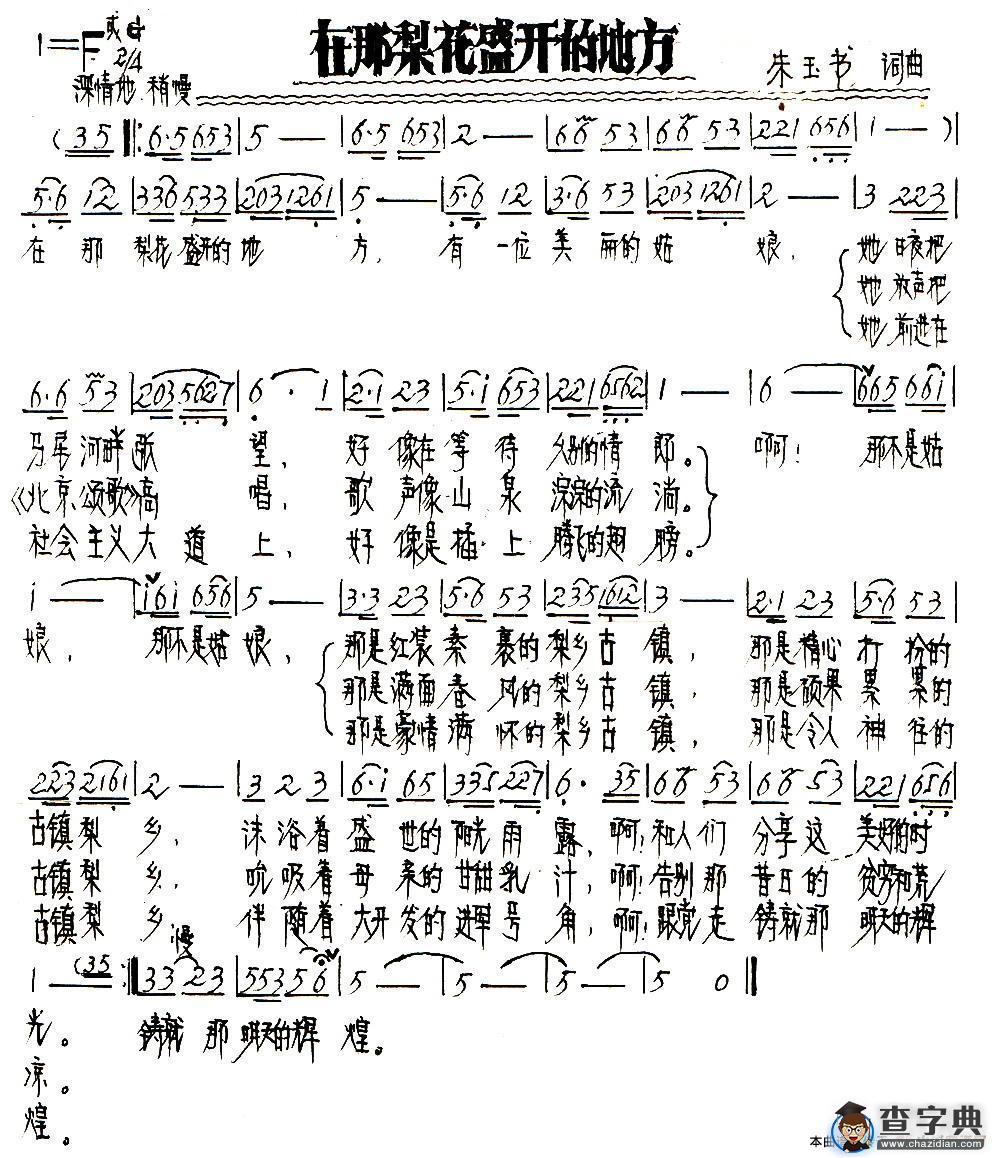 在那梨花盛开的地方
1=F或G 2/4
深情地 稍慢
朱玉书 词曲
(35‖:6·5 653|5—|6·5 653|2—|66 53|66 53|221 656|1—)|
5·6 12|336 533|203 1261|5—|5·6 12|3·6 53|203 1261|2—|3 223|
在 那 梨花盛开的地 方, 有 一位美 丽的姑 娘, 她日夜把
她放声把
她前进在
6·6 53|203 5627|6·1|2·1 23|5·i 653|221 6562|1—|6—|665 66i|
马尾河畔张 望, 好 像在等 待 久别的情 郎。 啊! 那不是姑
《北京颂歌》高 唱, 歌 声像山 泉 淙淙的流 淌。
社会主义大 道 上, 好 像是插 上 腾飞的翅 膀。
i—|i6i 656|5—|3·3 23|5·6 53|235 1612|3—|2·1 23|5·6 53|
娘, 那不是姑 娘, 那是红装素 裹的梨乡古 镇, 那是精心打 扮的
那是满面春 风的梨乡古 镇, 那是硕果累 累的
那是豪情满 怀的梨乡古 镇, 那是令人神 往的
223 2161|2—|3 2 3|6·i 65|335 227|6· 35|66 53|66 53|221 656|
古镇梨 乡, 沐浴着盛 世的阳光雨 露,啊!和人们 分享这 美好的时
古镇梨 乡, 吮吸着母 亲的甘甜乳 汁,啊!告别那 昔日的 贫穷和荒
古镇梨 乡, 伴随着大开发的进军号 角,啊!跟党走 铸就那 明天的辉
慢
1—(35:‖33 23|553 56|5—|5—|5—|5 0‖
光。 铸就 那 明天的辉 煌。
凉。
煌。
本曲
查字典
www.chazidian.com